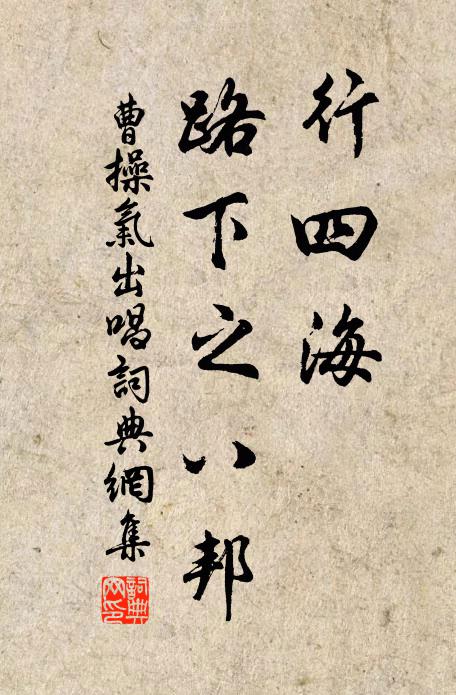 行四海
路下之八邦
曹操氣出唱詞典網集
詞典
网印